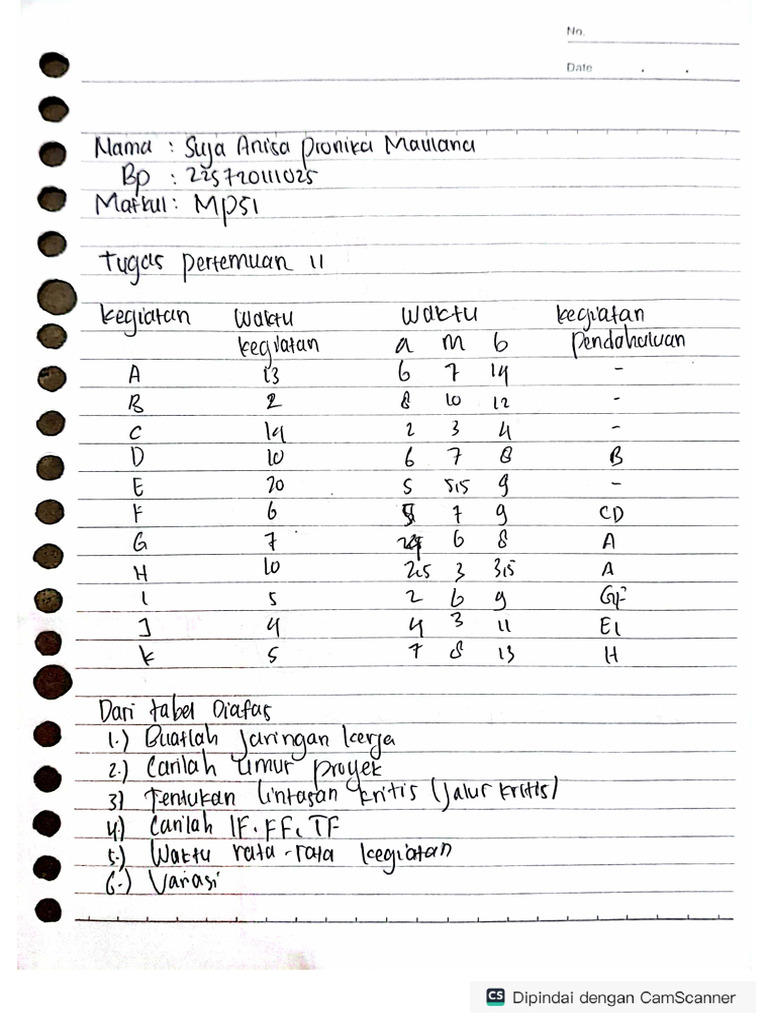 No.
Date . .
Nama : Suja Anisa pronika Maulana
Bp : 22572011025
Matkul : MPSI
Tugas pertemuan 11
kegiatan Waktu kegiatan Waktu kegiatan pendahuluan
a m b
A 13 6 7 14 -
B 2 8 10 12 -
C 14 2 3 4 -
D 10 6 7 8 B
E 20 5 5,5 9 -
F 6 5 7 9 CD
G 7 6 8 A
H 10 2,5 3 3,5 A
I 5 2 6 9 GF
J 4 4 3 11 EI
K 5 7 8 13 H
Dari tabel Diatas
1.) Buatlah Jaringan kerja
2.) Carilah umur proyek
3) Tentukan lintasan kritis (Jalur kritis)
4) Carilah IF. FF, TF
5.) Waktu rata-rata kegiatan
6.) Variasi
CS Dipindai dengan CamScanner